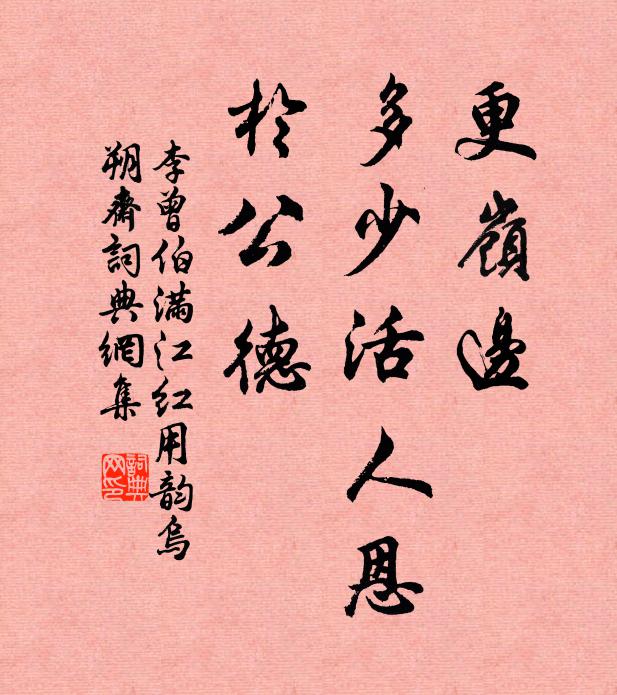 更嶺邊
多少活人恩
於公德
李曾伯滿江红用韵烏
朔齋詞典網集
詞典网印